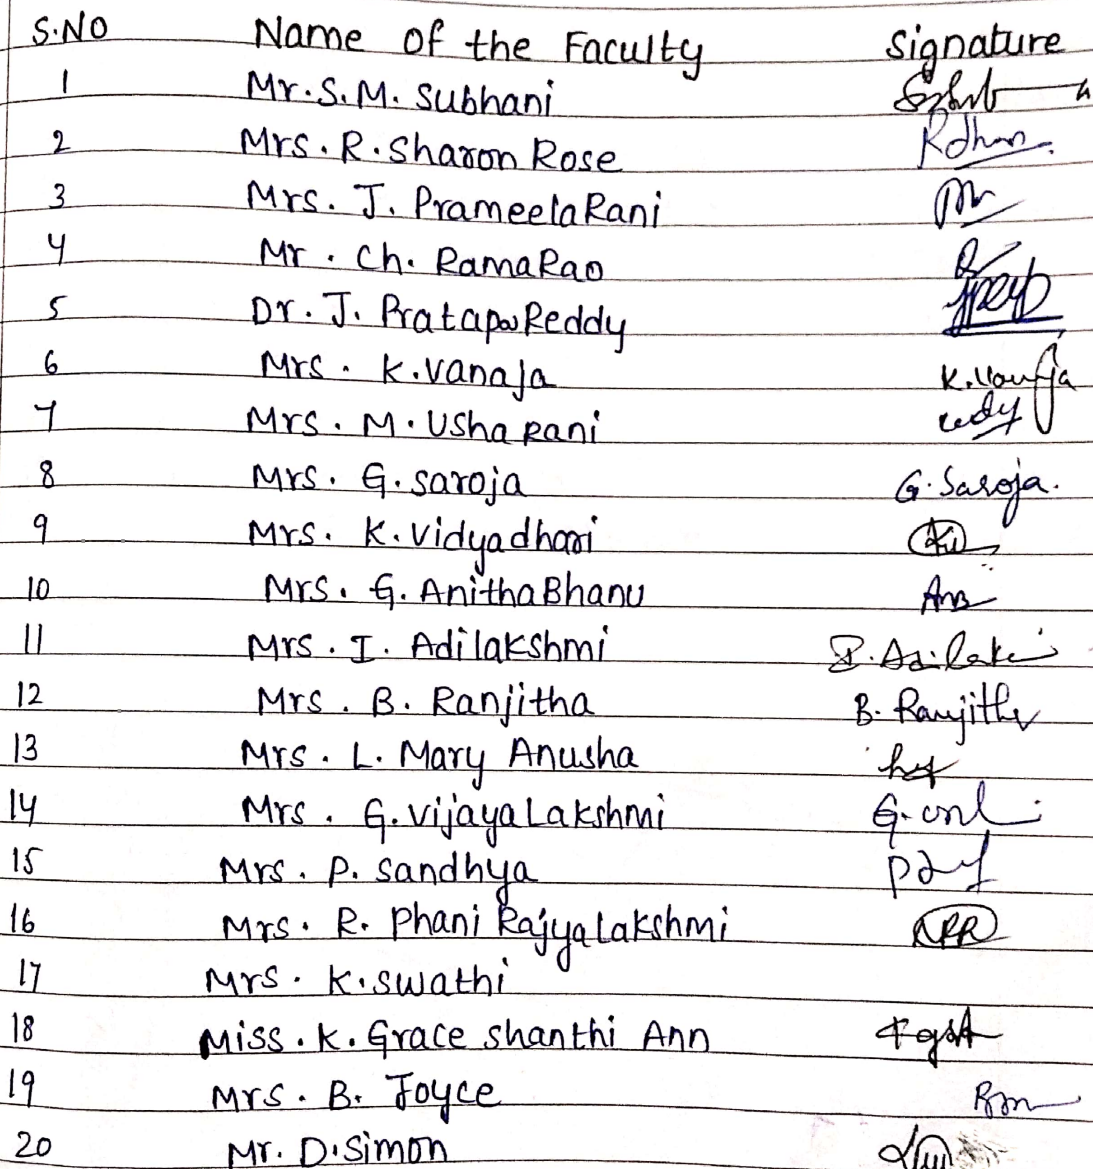 S.NO Name of the Faculty Signature
1 Mr.S.M. Subhani
2 Mrs. R. Sharon Rose
3 Mrs. J. Prameela Rani
4 Mr. Ch. Rama Rao
5 Dr. J. Pratapa Reddy
6 Mrs. K. Vanaja
7 Mrs. M. Usha Rani
8 Mrs. G. Saroja G. Saroja.
9 Mrs. K. Vidyadhari
10 Mrs. G. Anitha Bhanu
11 Mrs. I. Adilakshmi
12 Mrs. B. Ranjitha B. Ranjitha
13 Mrs. L. Mary Anusha
14 Mrs. G. Vijaya Lakshmi
15 Mrs. P. Sandhya
16 Mrs. R. Phani Rajya Lakshmi
17 Mrs. K. Swathi
18 Miss. K. Grace Shanthi Ann
19 Mrs. B. Joyce
20 Mr. D. Simon